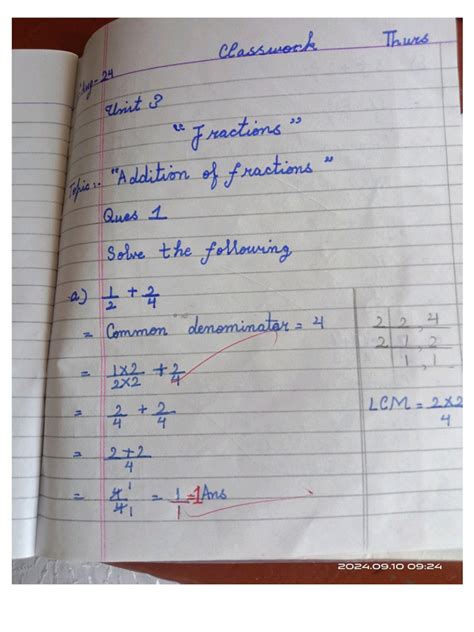 Classwork Thurs
Aug - 24
Unit 3
"Fractions"
Topic:- "Addition of fractions"
Ques 1
Solve the following
a) 1/2 + 2/4
= Common denominator = 4
= 1×2/2×2 + 2/4
= 2/4 + 2/4
= 2+2/4
= 4/4 1 1 = 1/1 = 1 Ans
2 2, 4
2 1, 2
1, 1
LCM = 2×2
4
2024.09.10 09:24